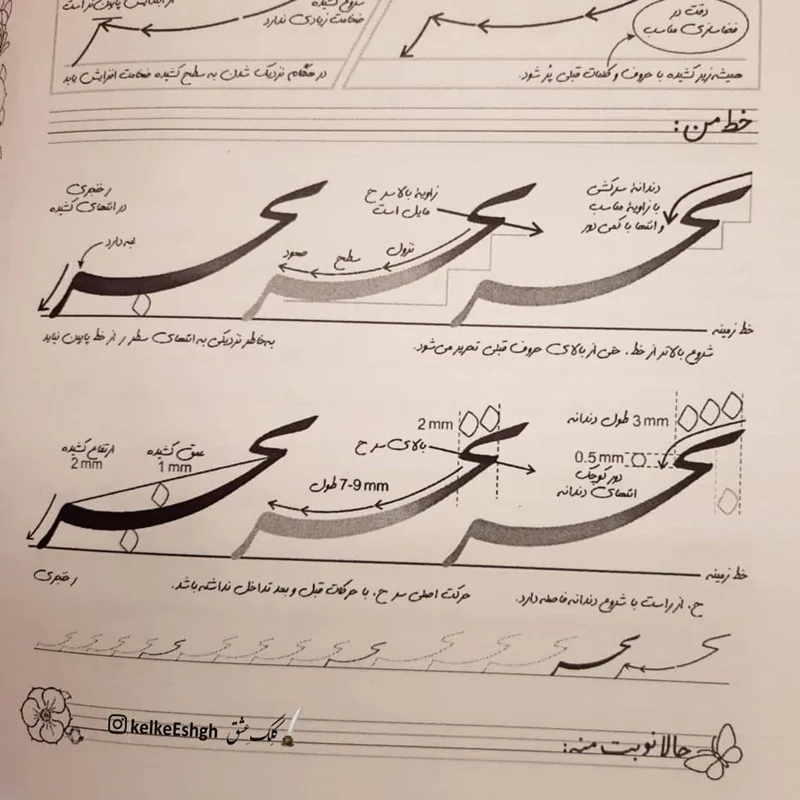 دقت در
فضاسازی مناسب
همیشه زیر کشیده با حروف و کلمات قبلی پر شود.
شروع کشیده
ضخامت زیادی ندارد
در هنگام نزدیک شدن به سطح کشیده ضخامت افزایش یابد
خط من:
دندانه سرکش
با زاویهٔ مناسب
و انتها با کمی دور
زاویهٔ بالا سر ح
مایل است
نزول
سطح
صعود
ر خنجری
در انتهای کشیده
لبه دارد
خط زمینه
شروع بالاتر از خط، حتی از بالای حروف قبلی تحریر می‌شود.
به‌خاطر نزدیکی به انتهای سطر ر از خط پایین نیاید
3 mm طول دندانه
0.5 mm
دور کوچک
انتهای دندانه
2 mm
بالای سر ح
7-9 mm طول
عمق کشیده
1 mm
ارتفاع کشیده
2 mm
خط زمینه
ر خنجری
ح، از راست با شروع دندانه فاصله دارد.
حرکت اصلی سر ح، با حرکات قبل و بعد تداخل نداشته باشد.
حالا نوبت منه:
کلک عشق kelkeEshgh